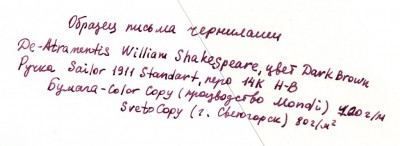 Образец письма чернилами
De-Atramentis William Shakespeare, цвет Dark Brown
Ручка Sailor 1911 Standart, перо 14K H-B
Бумага-Color Copy (производство Mondi) г/м
SvetoCopy (г. Светогорск) 80 г/м²